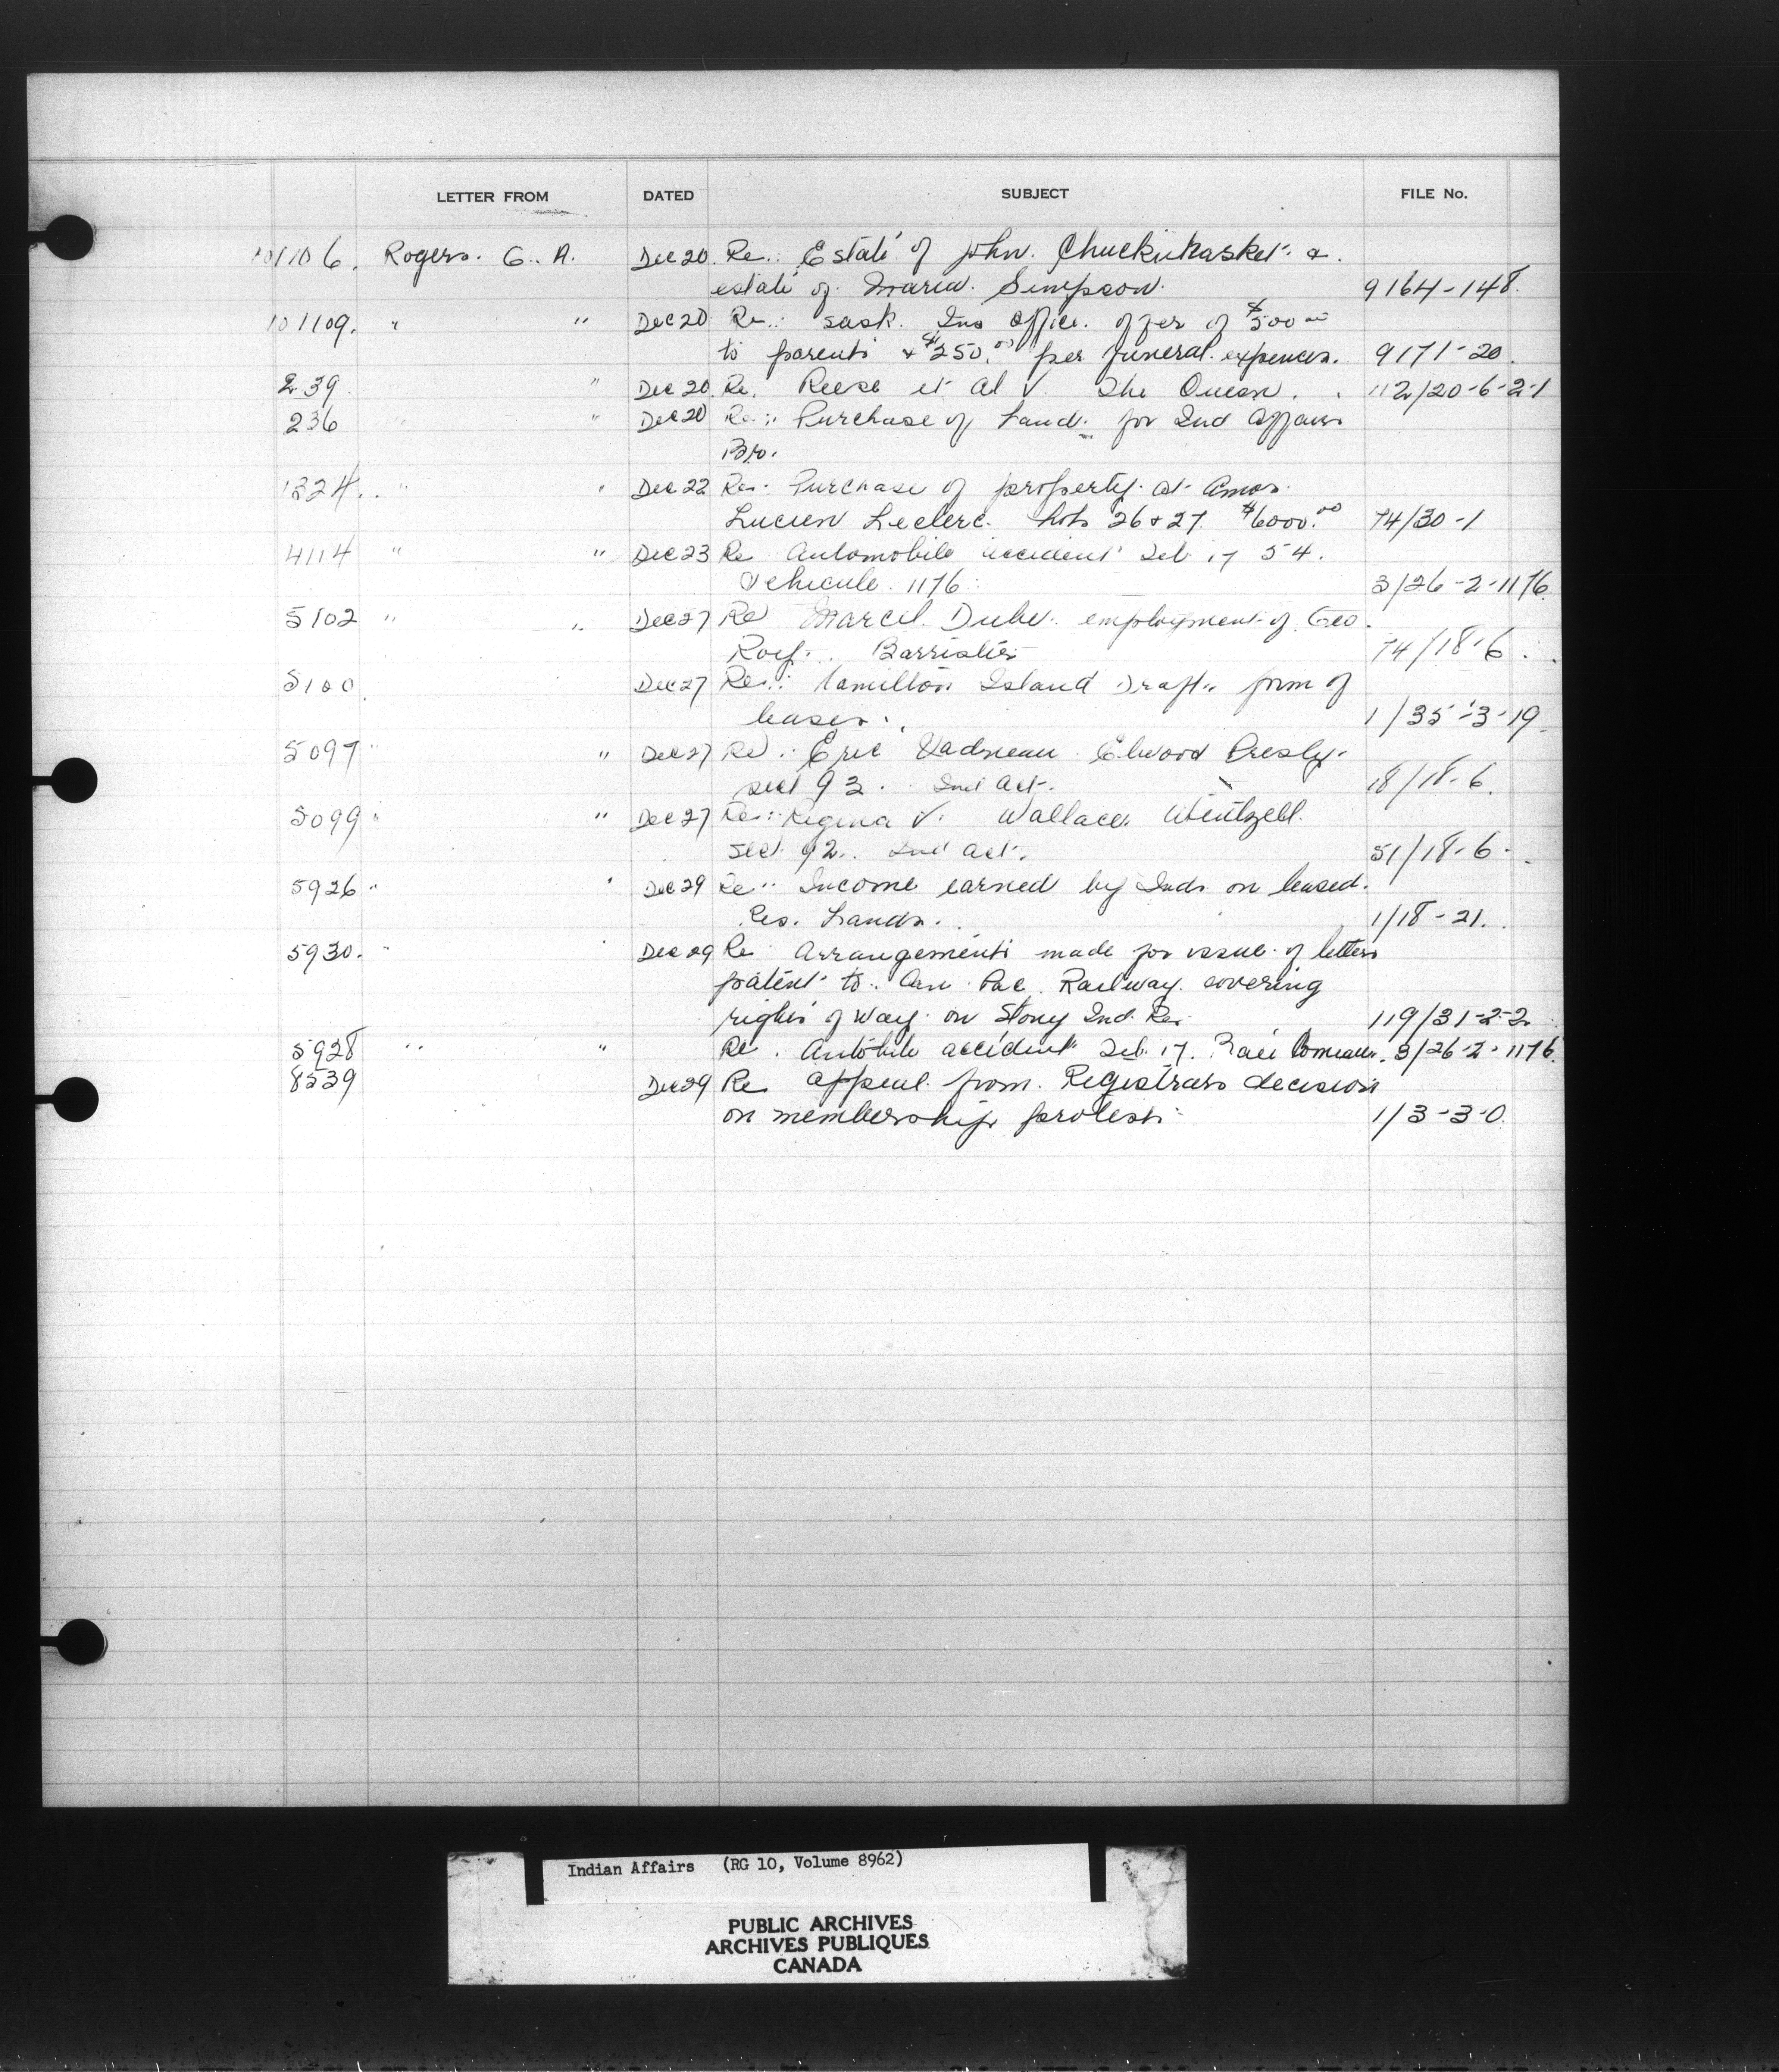 LETTER FROM DATED SUBJECT FILE No.
101106. Rogers. G. A. Dec 20. Re.: Estate of John. Chuckukasket &
estate of. Maria. Simpson. 9164-148.
101109. " " Dec 20 Re.: Sask. Ins Office. offer of $500 00
to parents & $250.00 per funeral. expences. 9171-20.
239 " Dec 20. Re. Reese et al V. The Queen. 112/20-6-2-1
236 " " Dec 20 Re.: Purchase of Land. for Ind Affairs
Br.
1324. " " Dec 22 Re. Purchase of property. at Amos.
Lucien Leclerc. Lots 26 & 27. $6000.00 74/30-1
4114 " " Dec 23 Re Automobile accident Feb 17 54.
Vehicule. 1176. 3/26-2-1176.
5102 " " Dec 27 Re Marcel. Dube. employment of. Geo.
Roy. Barrister 74/18-6.
5100. Dec 27 Re.: Hamilton Island Draft. form of
leases. 1/35-3-19
5097 " " Dec 27 Re.: Eric Vadneau. Elwood Presly.
sect 93. Ind Act. 18/18-6.
5099 " " Dec 27 Re.: Regina V. Wallace. Wentzell.
sect. 92. Ind Act. 51/18-6.
5926 " " Dec 29 Re. Income earned by Inds on leased.
Res. Lands. 1/18-21.
5930. " " Dec 29 Re Arrangements made for issue. of letters
patent to. Can. Pac. Railway. covering
rights of way. on Stony Ind. Res. 119/31-2-2
5928 " " Re. Autobile accident Feb. 17. Comeau. 3/26-2-1176.
8539 Dec 29 Re appeal. from. Registrars decision
on membership protest. 1/3-3-0.
Indian Affairs (RG 10, Volume 8962)
PUBLIC ARCHIVES
ARCHIVES PUBLIQUES
CANADA